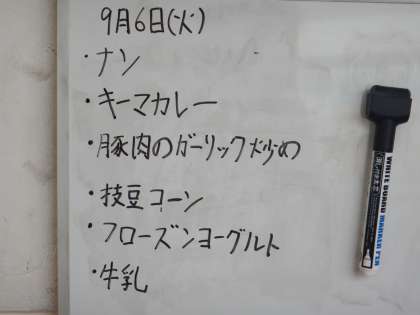 9月6日(火)
・ナン
・キーマカレー
・豚肉のガーリック炒め
・枝豆コーン
・フローズンヨーグルト
・牛乳
WHITE BOARD MARKER PEN